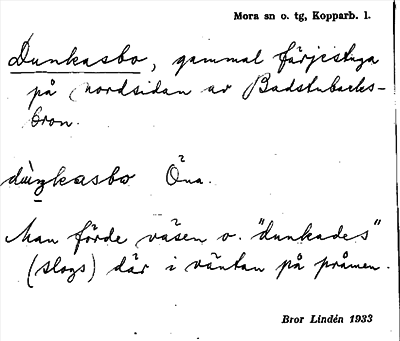 Mora sn o. tg, Kopparb. l.
Dunkasbo, gammal färjestuga
på nordsidan av Badstubacks-
bron.
dùŋkasbo Öna.
Man förde väsen o. "dunkades"
(slogs) där i väntan på pråmen.
Bror Lindén 1933